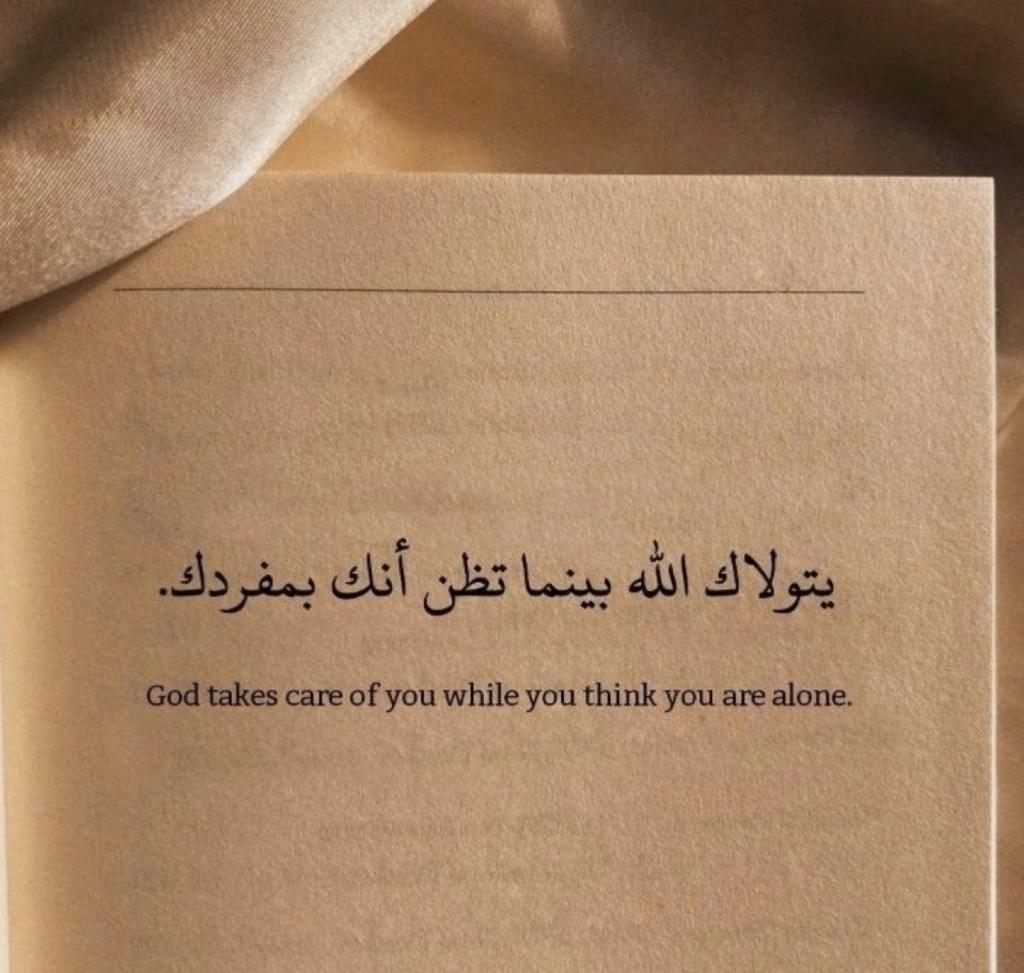 يتولاك الله بينما تظن أنك بمفردك.
God takes care of you while you think you are alone.